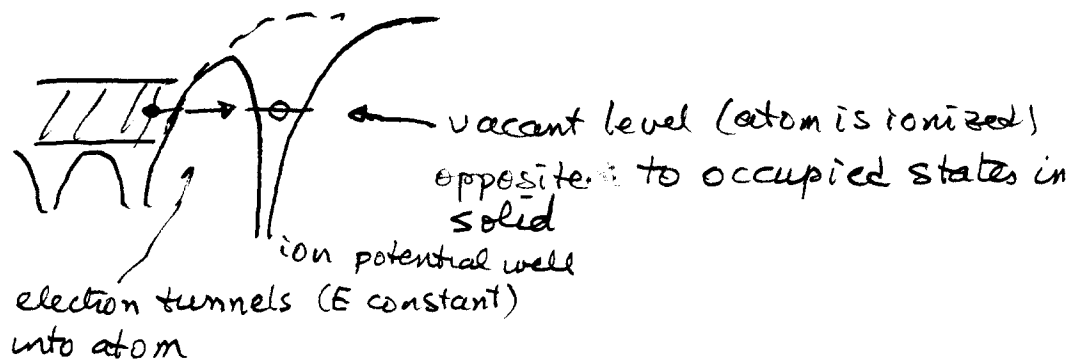 vacant level (atom is ionized)
opposite to occupied states in
solid
ion potential well
electron tunnels (E constant)
into atom